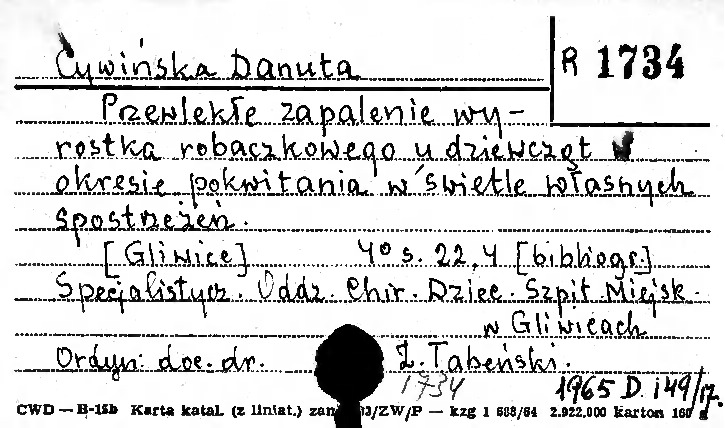 Cywińska Danuta
R 1734
Przewlekłe zapalenie wy-
rostka robaczkowego u dziewcząt w
okresie pokwitania w świetle własnych
spostrzeżeń.
[Gliwice] 4° s. 22, 4 [bibliogr.]
Specjalistycz. Oddz. Chir. Dziec. Szpit. Miejsk.
w Gliwicach
Ordyn. doc. dr. Z. Tabeński.
1734
1965 D. 149/17.
CWD — B-15b Karta katal. (z liniat.) zam /ZW/P — kzg 1 688/64 2.922.000 karton 160 g